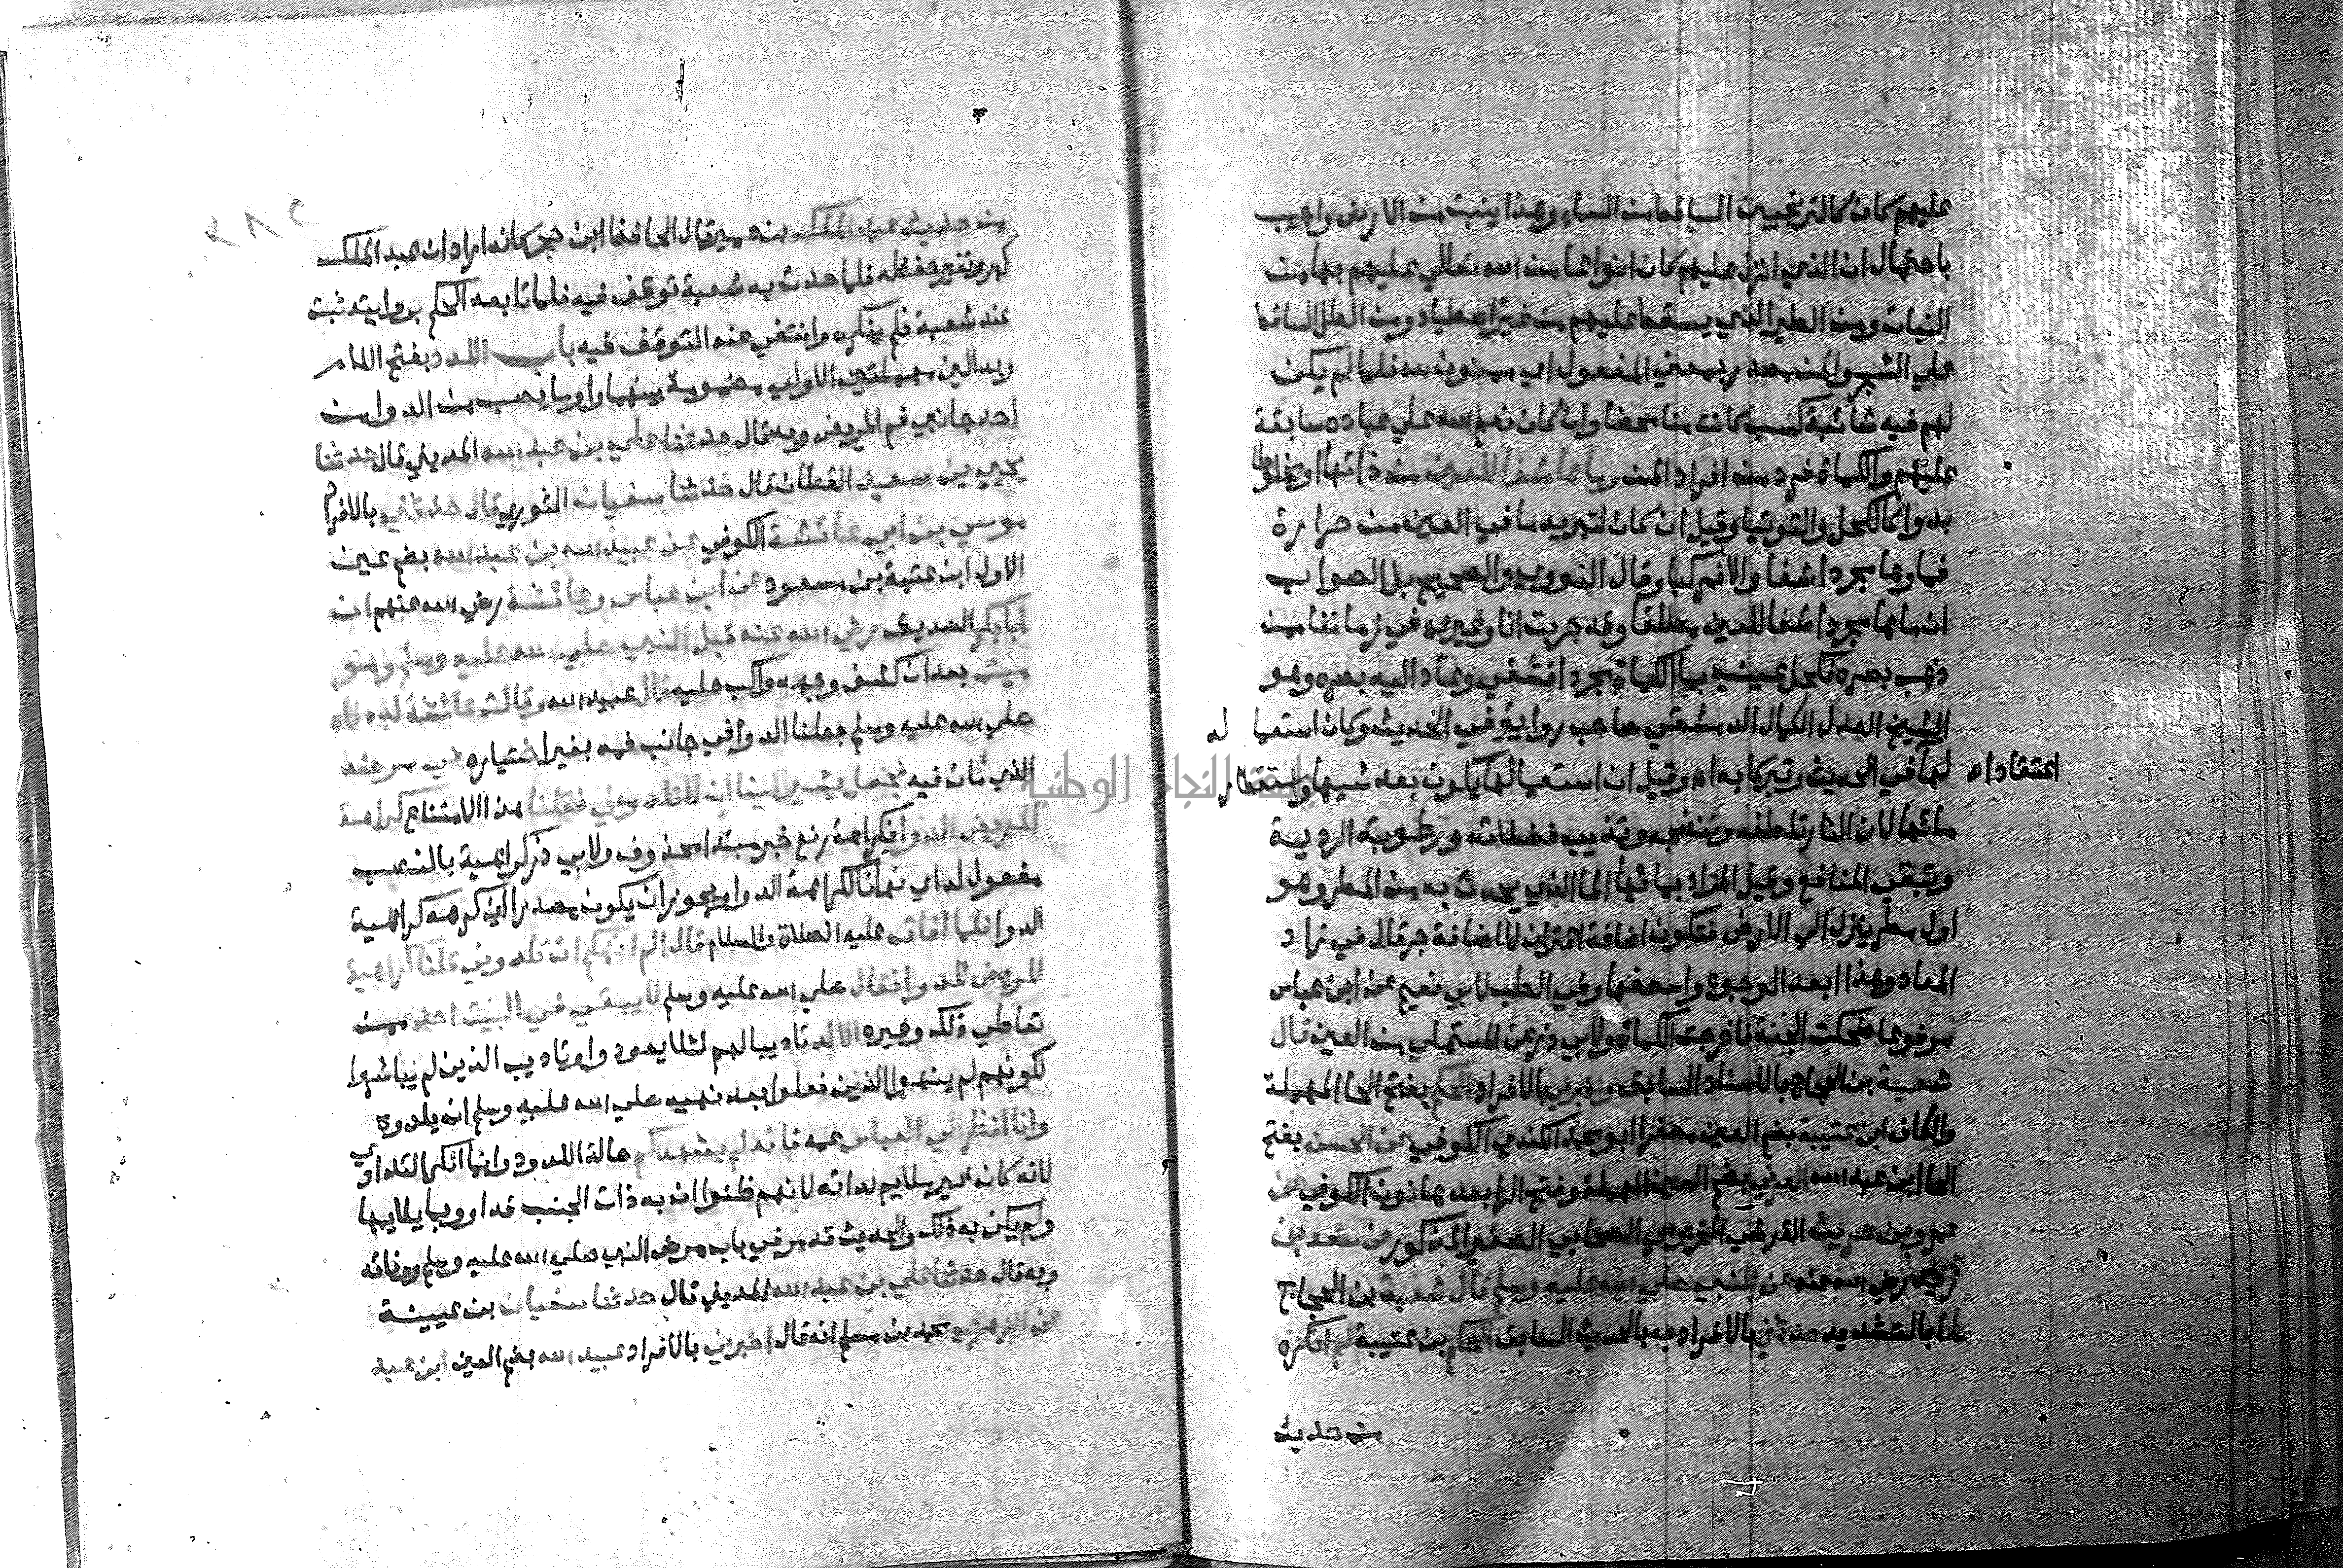 عليهم كان كالترنجبين الساقط من السماء وهذا ينبت من الارض واجيب
باحتمال ان الذي انزل عليهم كان انواعا من الله تعالي عليهم بها من
النبات ومن الطير الذي يسقط عليهم من غير اصطياد ومن الطل الساقط
علي الشجر والمن مصدر بمعني المفعول اي ممنون به فلما لم يكن
لهم فيه شائبة كسب كانت منا محضا وان كان نعم الله علي عباده سابقة
عليهم والكماة فرد من افراد المن وماءها شفا للعين من ذاتها او مخلوطا
بدوا كالكحل والتوتيا وقيل ان كان لتبريد ما في العين من حرارة
فماوها مجردا شفا والا فمركبا وقال النووي والصحيح بل الصواب
ان ماها مجردا شفا للعين مطلقا وقد جربت انا وغيري في زماننا من
ذهب بصره فكحل عينيه بماء الكماة مجردا فشفي وعاد اليه بصره وهو
الشيخ العدل الكمال الدمشقي صاحب رواية في الحديث وكان استعما له
لها في الحديث وتبركا به اه وقيل ان استعمالها يكون بعد شيها واستقطار
اعتقادا
مائها لان النار تلطفه وتنضجه وتذيب فضلاته ورطوبته الردية
وتبقي المنافع وقيل المراد بمائها الما الذي يحدث به من المطر وهو
اول مطر ينزل الي الارض فتكون اضافة اقتران لا اضافة جز قال في زاد
المعاد وهذا ابعد الوجوه واضعفها وفي الطب لابي نعيم عن ابن عباس
مرفوعا ضحكت الجنة فاخرجت الكماة ولابي ذر عن المستملي من العين قال
شعبة بن الحجاج بالاسناد السابق واخبرني بالافراد الحكم بفتح الحا المهملة
والكاف ابن عتيبة بضم العين مصغرا ابو محمد الكندي الكوفي عن الحسن بفتح
الحا ابن عبد الله العرني بضم العين المهملة وفتح الرا بعدها نون الكوفي عن
عمرو بن حريث القرشي المخزومي الصحابي الصغير المذكور عن سعيد بن
زيد رضي الله عنه عن النبي صلي الله عليه وسلم قال شعبة بن الحجاج
لما بالتشديد حدثني بالافراد به بالحديث السابق الحكم بن عتيبة لم انكره
من حديث
من حديث عبد الملك بن عمير قال الحافظ ابن حجر كانه اراد ان عبد الملك
كبر وتغير حفظه فلما حدث به شعبة توقف فيه فلما تابعه الحكم بروايته ثبت
عند شعبة فلم ينكره وانتفي عنه التوقف فيه باب اللدد بفتح اللام
وبدالين مهملتين الاولي مضمومة بينهما واو ما يصب من الدوا من
احد جانبي فم المريض وبه قال حدثنا علي بن عبد الله المديني قال حدثنا
يحيي بن سعيد القطان قال حدثنا سفيان الثوري قال حدثني بالافراد
موسي بن ابي عائشة الكوفي عن عبيد الله بن عبد الله بضم عين
الاول ابن عتبة بن مسعود عن ابن عباس وعائشة رضي الله عنهم ان
ابا بكر الصديق رضي الله عنه قبل النبي صلي الله عليه وسلم وهو
ميت بعد ان كشف وجهه واكب عليه قال عبيد الله وقالت عائشة لددناه
صلي الله عليه وسلم جعلنا الدوا في جانب فمه بغير اختياره في مرضه
الذي مات فيه فجعل يشير الينا ان لا تلدوني فقلنا هذا الامتناع كراهة
المريض الدوا فكراهة رفع خبر مبتدا محذوف ولابي ذر كراهية بالنصب
مفعول له اي نهانا لكراهة الدوا ويجوز ان يكون مصدرا اي كرهه كراهية
الدوا فلما افاق عليه الصلاة والسلام قال الم انهكم ان تلدوني قلنا كراهية
المريض للدوا فقال صلي الله عليه وسلم لا يبقي في البيت احد ممن
تعاطي ذلك وغيره الا لد تاديبا لهم لئلا يعودوا وتاديب الذين لم يباشروا
لكونهم لم ينهوا الذين فعلوا بعد نهيه صلي الله عليه وسلم ان يلدوه
وانا انظر الي العباس عمه فانه لم يشهدكم حالة اللدود وانما انكر التداوي
لانه كان غير ملايم لدائه لانهم ظنوا ان به ذات الجنب فداووه بما يلايمها
ولم يكن به ذلك والحديث قد مر في باب مرض النبي صلي الله عليه وسلم ووفاته
وبه قال حدثنا علي بن عبد الله المديني قال حدثنا سفيان بن عيينة
عن الزهري محمد بن مسلم انه قال اخبرني بالافراد عبيد الله بضم العين ابن عبد
النجاح الوطنية